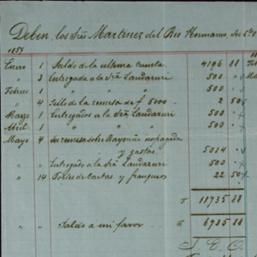 Deben, los Sres Martinez del Rio Hermanos, su Cta
1854
Enero 1 Saldo de la ultima cuenta 4196 88
" 3 Entregado a la Sra Landazuri 500
Febro 1 " " " " 500
" 4 Sello de la remesa de $ 5000 2 50
Marzo 1 Entregados a la Sra Landazuri 500
Abril 1 " " " " 500
Mayo 4 Su remesa sobre no pagada
y gastos 5014 50
" " Entregado a la Sra Landazuri 500
" 14 Portes de cartas y franqueo 22 50
$ 11735 88
Saldo a mi favor $ 6735 88
S. E. O.